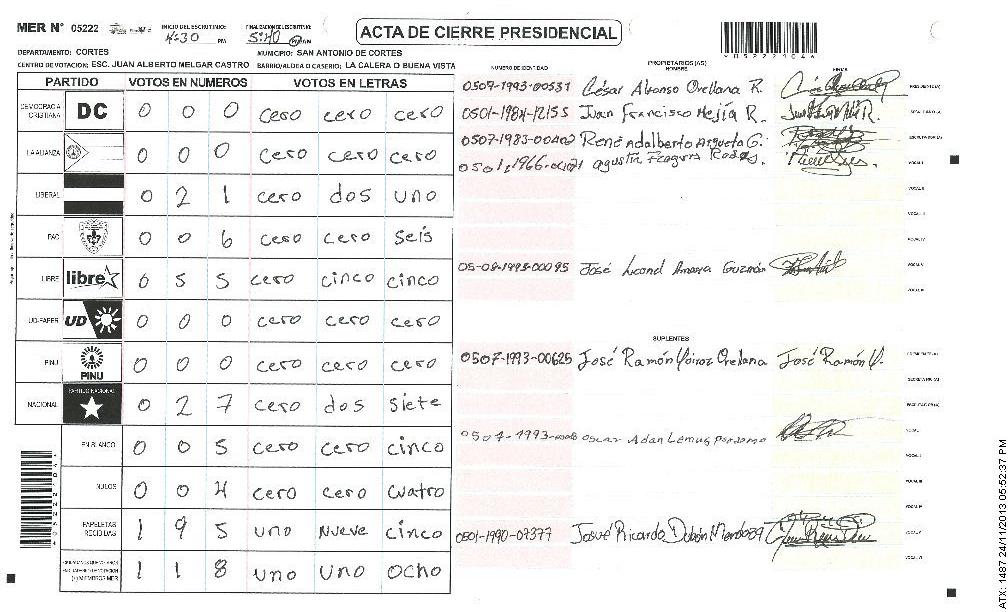 MER Nº 05222
INICIO DEL ESCRUTINIO: 4:30 PM
FINALIZACION DEL ESCRUTINIO: 5:40 PM
ACTA DE CIERRE PRESIDENCIAL
DEPARTAMENTO: CORTES
MUNICIPIO: SAN ANTONIO DE CORTES
CENTRO DE VOTACION: ESC. JUAN ALBERTO MELGAR CASTRO
BARRIO/ALDEA O CASERIO: LA CALERA O BUENA VISTA
PARTIDO VOTOS EN NUMEROS VOTOS EN LETRAS
DEMOCRACIA CRISTIANA DC 0 0 0 cero cero cero
LA ALIANZA 0 0 0 cero cero cero
LIBERAL 0 2 1 cero dos uno
PAC 0 0 6 cero cero seis
LIBRE libre 0 5 5 cero cinco cinco
UD-FAPER UD 0 0 0 cero cero cero
PINU PINU 0 0 0 cero cero cero
NACIONAL PARTIDO NACIONAL 0 2 7 cero dos siete
EN BLANCO 0 0 5 cero cero cinco
NULOS 0 0 4 cero cero cuatro
PAPELETAS RECIBIDAS 1 9 5 uno nueve cinco
(+) MIEMBROS MER 1 1 8 uno uno ocho
NUMERO DE IDENTIDAD
PROPIETARIOS(AS)
NOMBRE
FIRMA
0507-1993-00531 César Alfonso Orellana R. PRESIDENTE(A)
0501-1984-12155 Juan Francisco Mejía R. SECRETARIO(A)
0507-1983-00402 René Adalberto Argueta G. ESCRUTADOR(A)
VOCAL I
VOCAL II
VOCAL III
VOCAL IV
05-08-1993-00095 José Leonel Amaya Guzmán VOCAL V
VOCAL VI
SUPLENTES
0507-1993-00625 José Ramón Orellana José Ramón PRESIDENTE(A)
SECRETARIO(A)
ESCRUTADOR(A)
0507-1993- Oscar Adan Lemus Perdomo VOCAL I
VOCAL II
VOCAL III
VOCAL IV
0501-1990-07377 Josué Ricardo Dubón Mendoza VOCAL V
VOCAL VI
ATX: 1487 24/11/2013 05:52:37 PM